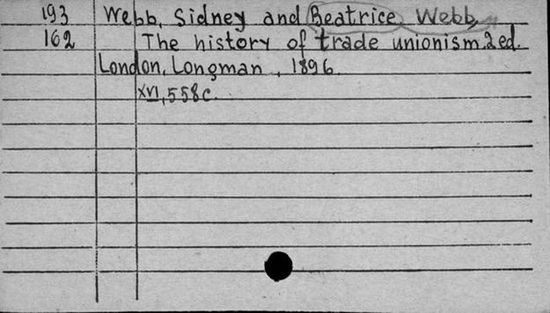 193 Webb, Sidney and Beatrice Webb,
162 The history of trade unionism. 2 ed.
London, Longman, 1896.
XVI, 558 c.